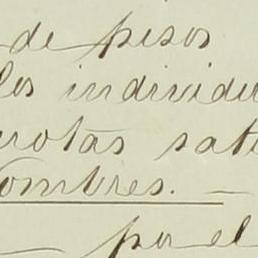 de pesos
los individu
rrotas sati
ombres. —
— por el